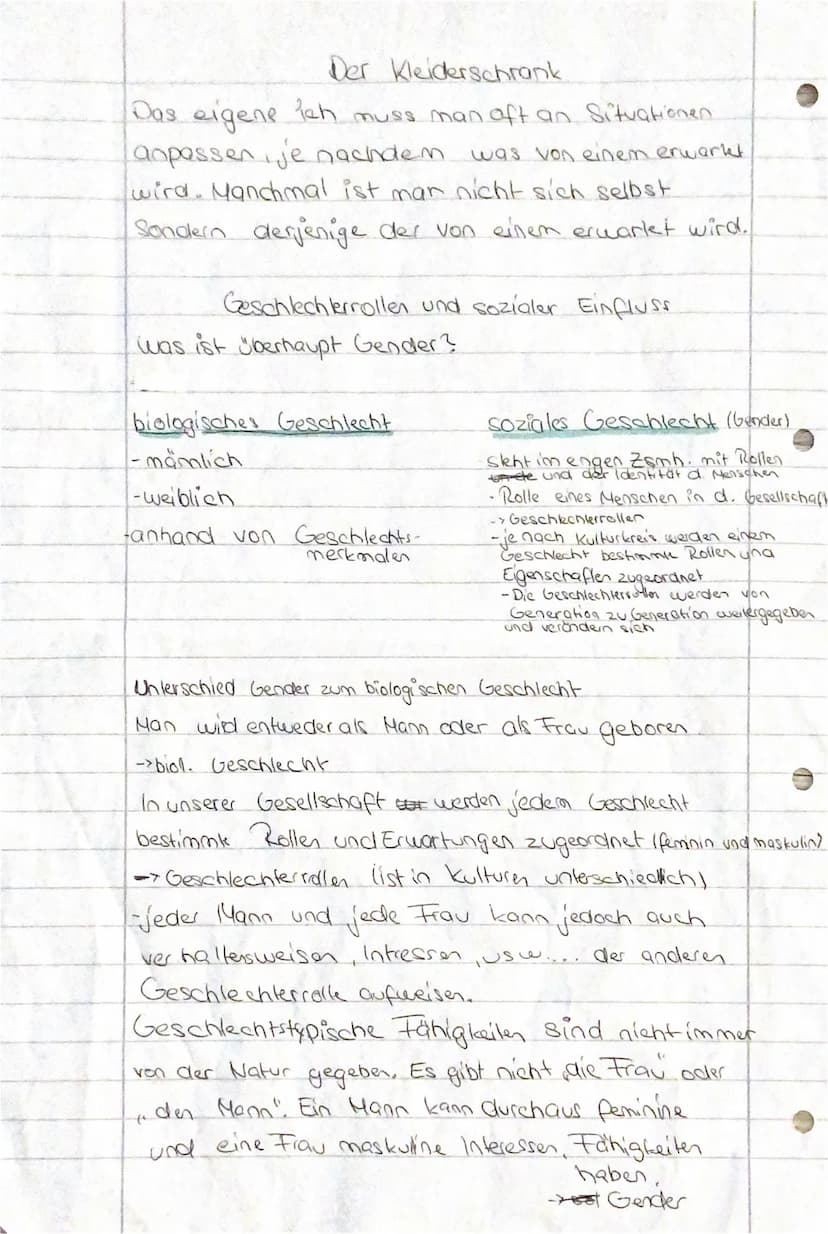 Der Kleiderschrank
Das eigene Ich muss man oft an Situationen
anpassen, je nachdem was von einem erwartet
wird. Manchmal ist man nicht sich selbst
Sondern derjenige der von einem erwartet wird.
Geschlechterrollen und sozialer Einfluss
Was ist überhaupt Gender?
biologisches Geschlecht
- männlich
- weiblich
- anhand von Geschlechts-
merkmalen
soziales Geschlecht (Gender)
steht im engen Zsmh. mit Rollen
und der Identität d. Menschen
- Rolle eines Menschen in d. Gesellschaft
-> Geschlechterrollen
- je nach Kulturkreis werden einem
Geschlecht bestimmte Rollen und
Eigenschaften zugeordnet
- Die Geschlechterrollen werden von
Generation zu Generation weitergegeben
und verändern sich
Unterschied Gender zum biologischen Geschlecht
Man wird entweder als Mann oder als Frau geboren
-> biol. Geschlecht
In unserer Gesellschaft werden jedem Geschlecht
bestimmte Rollen und Erwartungen zugeordnet (feminin und maskulin)
-> Geschlechterrollen (ist in Kulturen unterschiedlich)
- jeder Mann und jede Frau kann jedoch auch
verhaltensweisen, Intressen, usw.... der anderen
Geschlechterrolle aufweisen.
Geschlechtstypische Fähigkeiten sind nicht immer
von der Natur gegeben. Es gibt nicht „die Frau" oder
„den Mann". Ein Mann kann durchaus feminine
und eine Frau maskuline Interessen, Fähigkeiten
haben.
-> Gender